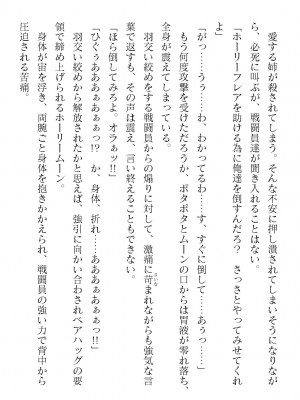 愛する姉が殺されてしまう。そんな不安に押し潰されてしまいそうになりなが
ら、必死に叫ぶが、戦闘員達が聞き入れることはない。
「ホーリーフレアを助ける為に俺達を倒すんだろ？　さっさとやってみせてくれ
よ」
「がっ……うぅ……わ、わかってるわ……す、すぐに倒して……あぅっ……」
もう何度攻撃を受けただろうか、ポタポタとムーンの口からは胃液が零れ落ち、
全身が震えてしまっている。
羽交い絞めをする戦闘員からの煽りに対して、激痛に苛まれながらも強気な言
葉で返すも、その声は震え、言い終えることもできない。
「ほら倒してみろよ。オラぁッ!!」
「ひぐぅああああぁぁぁっ!?　か、身体、折れ……ああああぁぁっ!!」
羽交い絞めから解放されたかと思えば、強引に向かい合わされベアハッグの要
領で締め上げられるホーリームーン。
身体が宙を浮き、両腕ごと身体を抱きかかえられ、戦闘員の強い力で背中から
圧迫される苦痛。